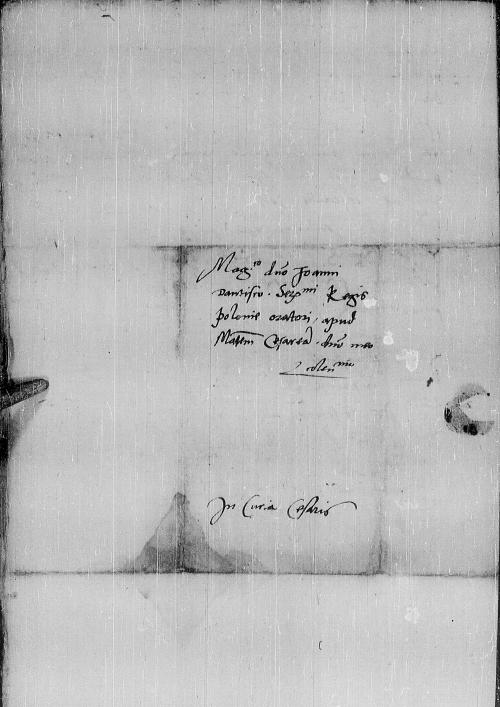 Mag.co dno Joanni
Dantisco. Ser.mi Regis
Polonie oratori, apud
Ma.tem Cesarea. dno meo
Colen.mo
In Curia Cesaris